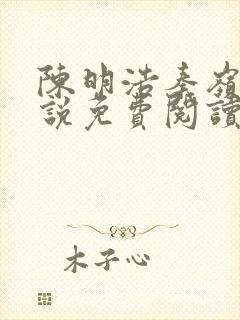 陳明浩秦嶺
說免費閱讀
木子心